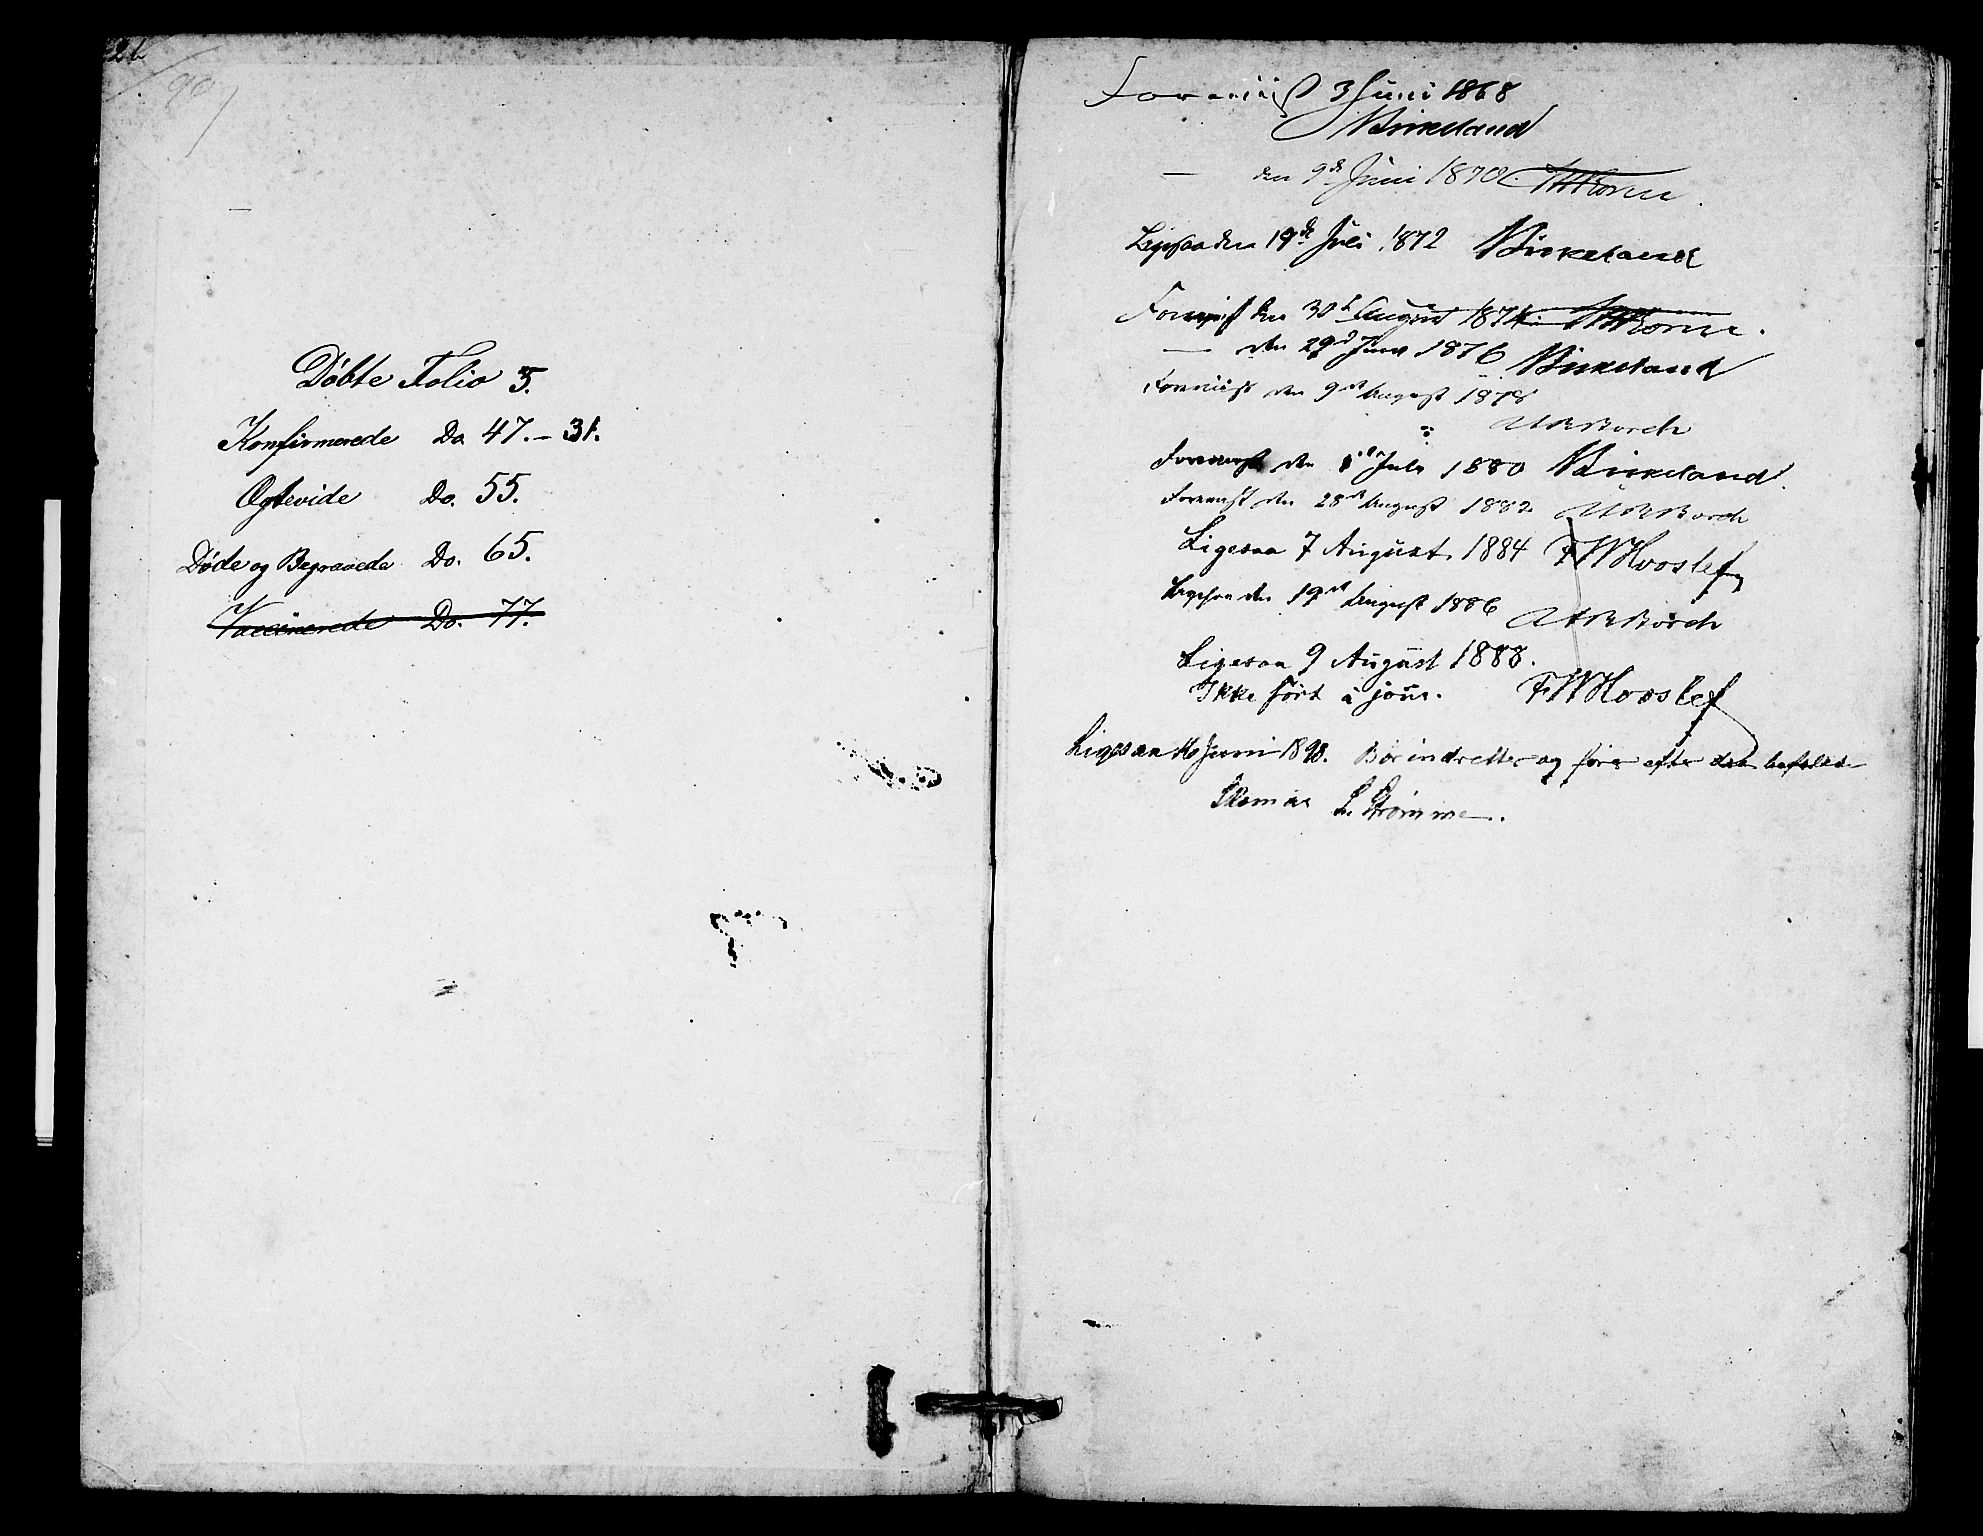 26
90
Døbte Folio 5.
Konfirmerede Do 47. – 31.
Ægtevide Do. 55.
Døde og Begravede Do. 65.
Vaccinerede Do. 77.
Foreviist 3 Juni 1868
Birkeland
— den 9de Juni 1870.
Ligesaa den 19de Juli 1872 Birkeland
Foreviist den 30te August 1874
— den 29d Juni 1876 Birkeland
Foreviist den 9de August 1878
Borch
Foreviist den Juli 1880 Birkeland.
Foreviist den 28de August 1882 Borch
Ligesaa 7 August 1884 FWHvoslef
Ligesaa den 19de August 1886 Borch
Ligesaa 9 August 1888.
Ikke ført à jour. FWHvoslef
Ligesaa 16 Juni 1890. Bør indrettes og føres efter den befalede
Skema L. Strømme.